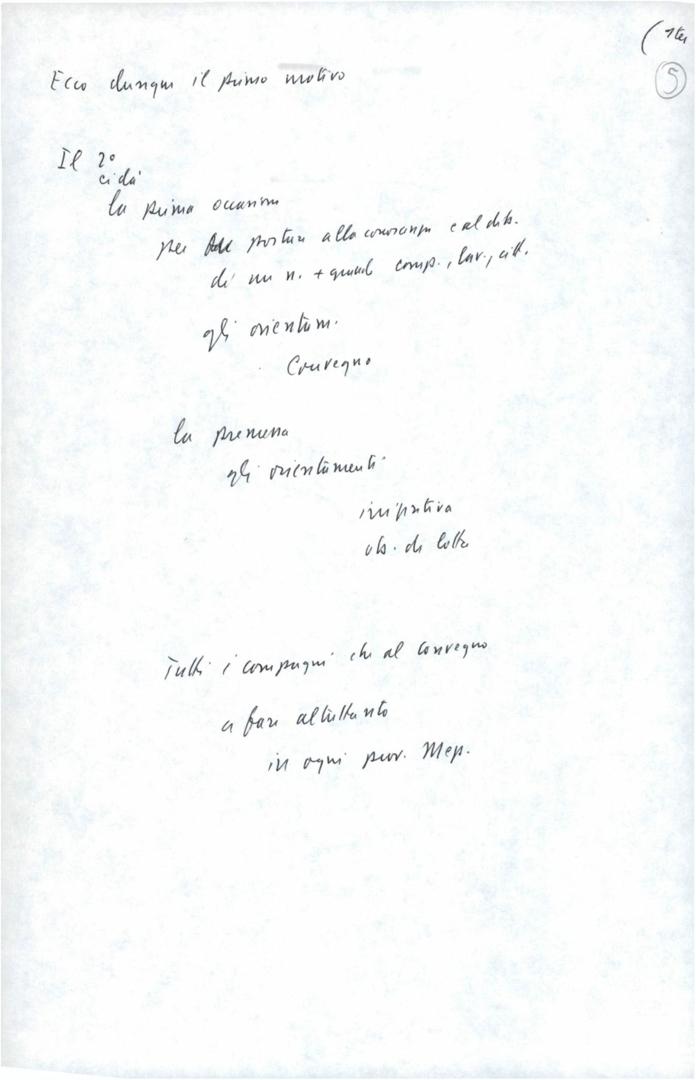 (1ter
5
Ecco dunque il primo motivo
Il 2°
ci dà
la prima occasione
per portare alla conoscenza e al dib.
di un n. + grande comp., lav., citt.
gli orientam.
Convegno
la premessa
gli orientamenti
iniziativa
ob. di lotta
Tutti i compagni che al convegno
a fare altrettanto
in ogni prov. Mep.